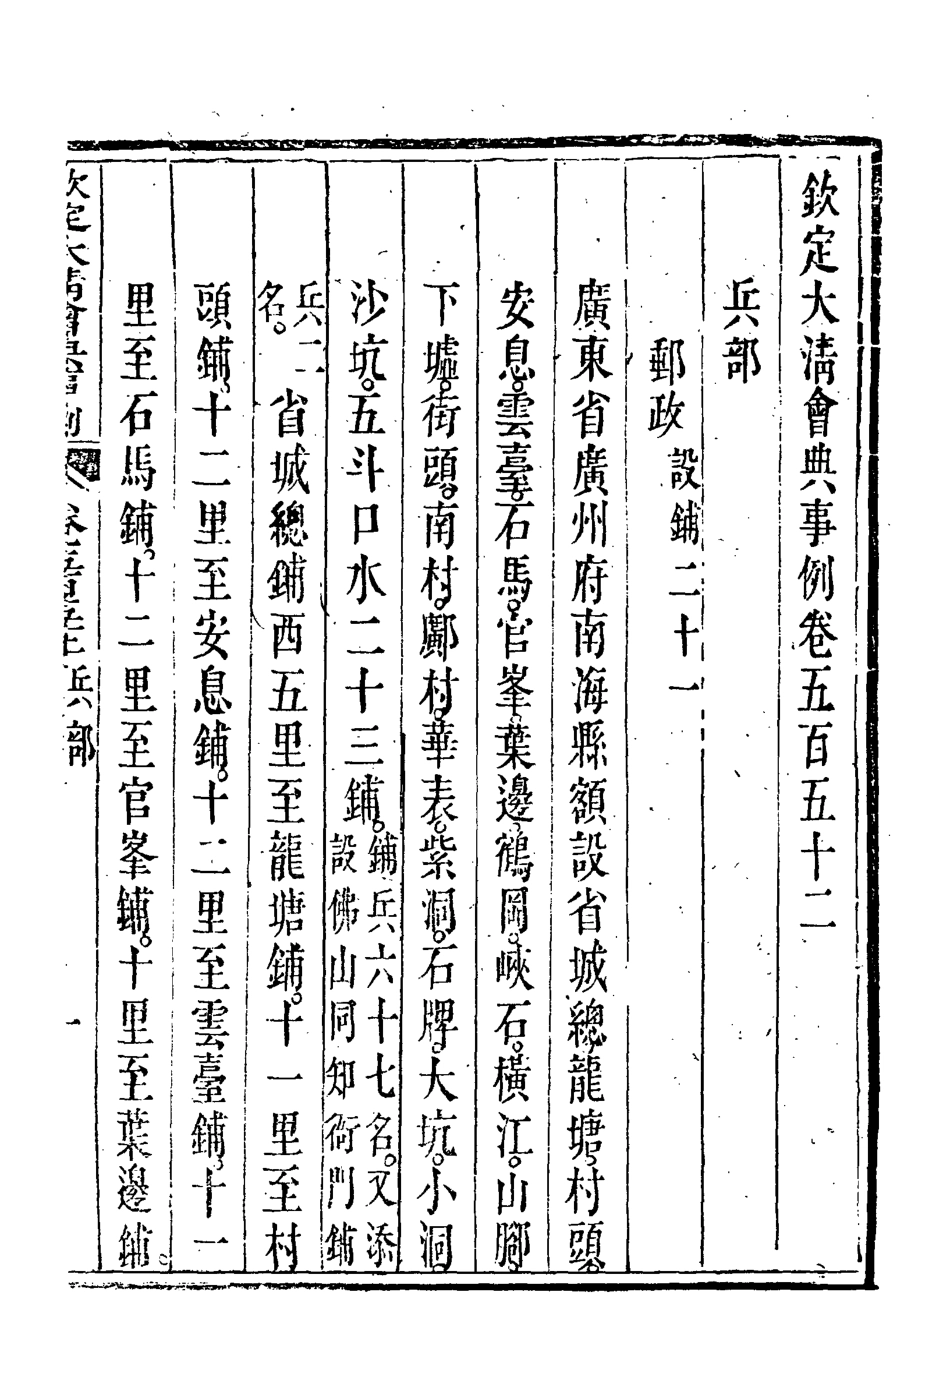 欽定大淸會典事例卷五百五十二
兵部
郵政 設鋪二十一
廣東省廣州府南海縣額設省城總龍塘村頭。
安息。雲臺。石馬。官峯。葉邊。鶴岡。峽石。橫江。山腳。
下墟。街頭。南村。鄺村。華表。紫洞。石牌。大坑。小洞。
沙坑。五斗口水二十三鋪。鋪兵六十七名。又添設佛山同知衙門鋪
兵二名。省城總鋪西五里至龍塘鋪。十一里至村
頭鋪。十二里至安息鋪。十二里至雲臺鋪。十一
里至石馬鋪。十二里至官峯鋪。十里至葉邊鋪。
欽定大淸會典事例 卷五百五十二 兵部 一